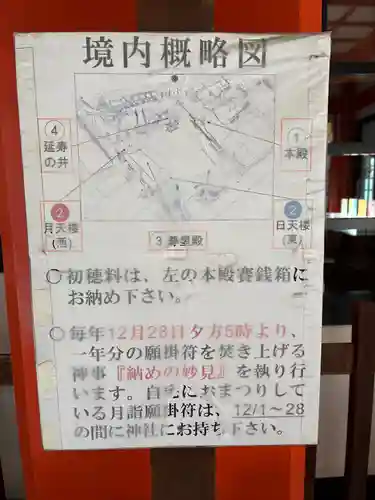 境内概略図
④
延寿
の井
①
本殿
②
月天楼
(西)
②
日天楼
(東)
3 尊星殿
○ 初穂料は、左の本殿賽銭箱に
お納め下さい。
○ 毎年12月28日夕方5時より、
一年分の願掛符を焚き上げる
神事『納めの妙見』を執り行
います。自宅におまつりして
いる月詣願掛符は、12/1~28
の間に神社にお持ち下さい。